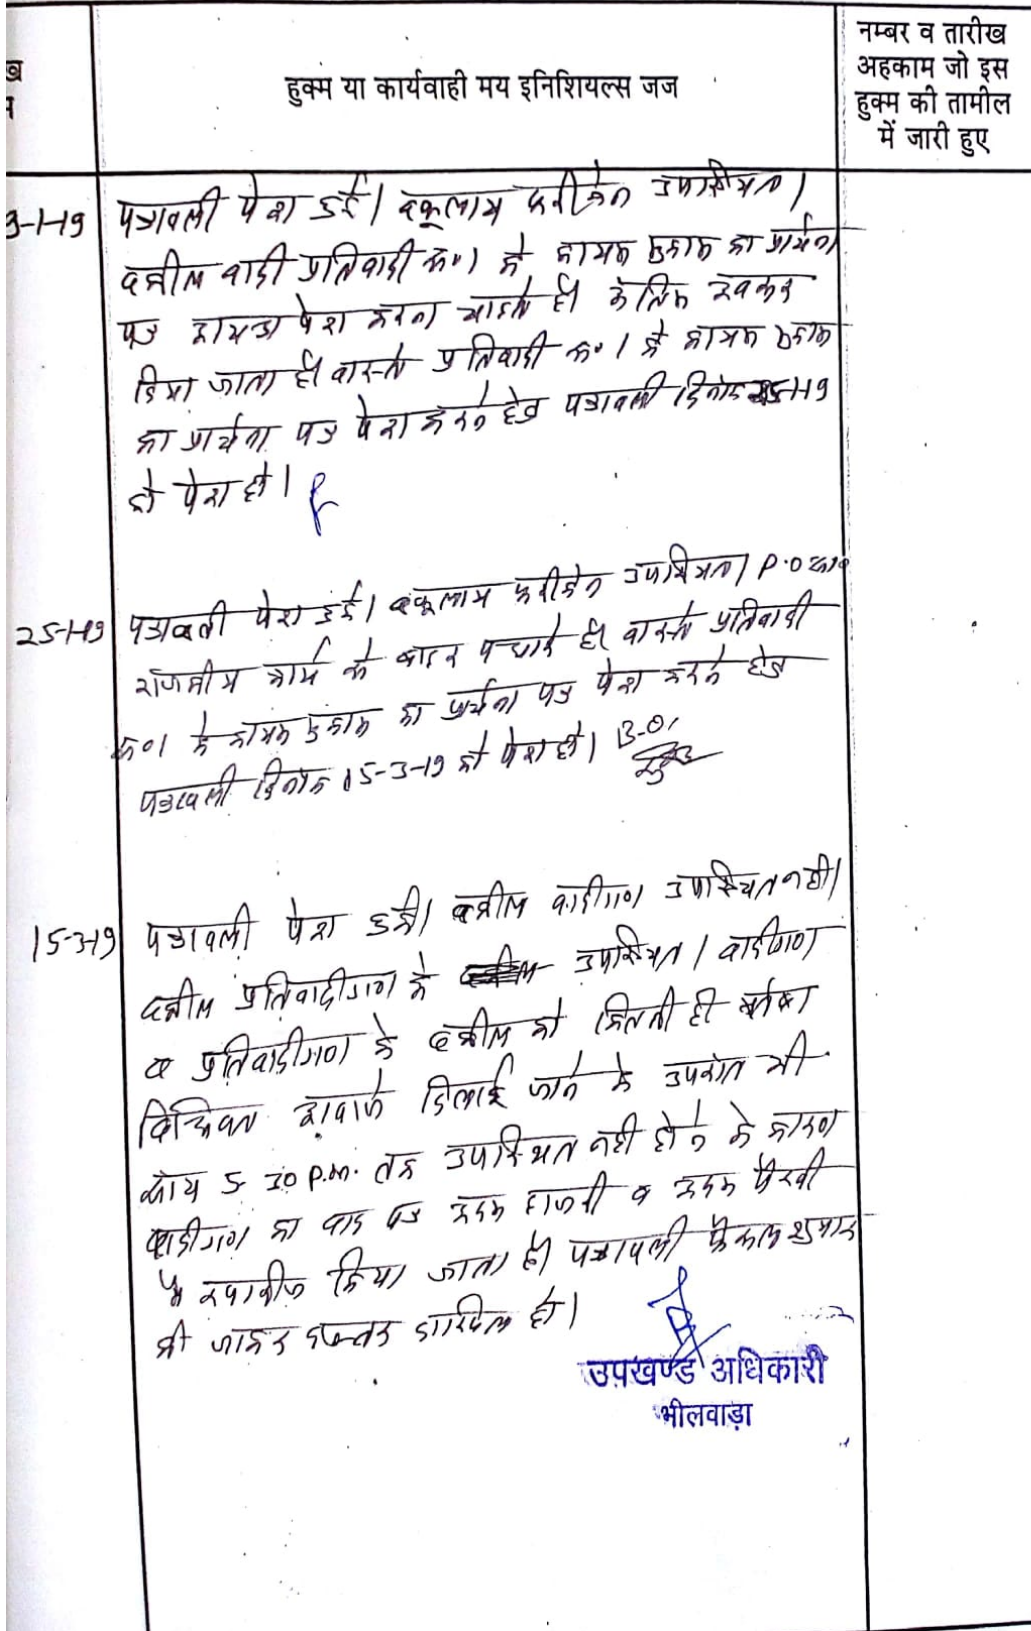 नम्बर व तारीख
अहकाम जो इस
हुक्म की तामील
में जारी हुए
हुक्म या कार्यवाही मय इनिशियल्स जज
पत्रावली पेश हुई। वकूलाय फरीकेन उपस्थित।
वकील वादी प्रतिवादी क्र०1 के कायम मुकाम का प्रार्थना
पत्र पेश करना चाहते है।
दिया जाता है। वास्ते प्रतिवादी क्र०1 के कायम मुकाम
का प्रार्थना पत्र पेश करने हेतु पत्रावली दिनांक 25-1-19
को पेश हो।
25-1-19 पत्रावली पेश हुई। वकूलाय फरीकेन उपस्थित। P.O
राजकीय कार्य से बाहर पधारे है। वास्ते प्रतिवादी
क्र०1 के कायम मुकाम का प्रार्थना पत्र पेश करने हेतु
पत्रावली दिनांक 15-3-19 को पेश हो।
15-3-19 पत्रावली पेश हुई। वकील वादीगण उपस्थित नही।
वकील प्रतिवादीगण के उपस्थित। वादीगण
व प्रतिवादीगण के वकील को कितनी ही
आवाजे दिलाई जाने के उपरांत भी
सायं 5 30 p.m. तक उपस्थित नही होने के कारण
वादीगण का वाद पत्र अदम हाजरी व अदम पैरवी
में खारीज किया जाता है। पत्रावली फैसल शुमार
की जाकर दफ्तर दाखिल हो।
उपखण्ड अधिकारी
भीलवाड़ा